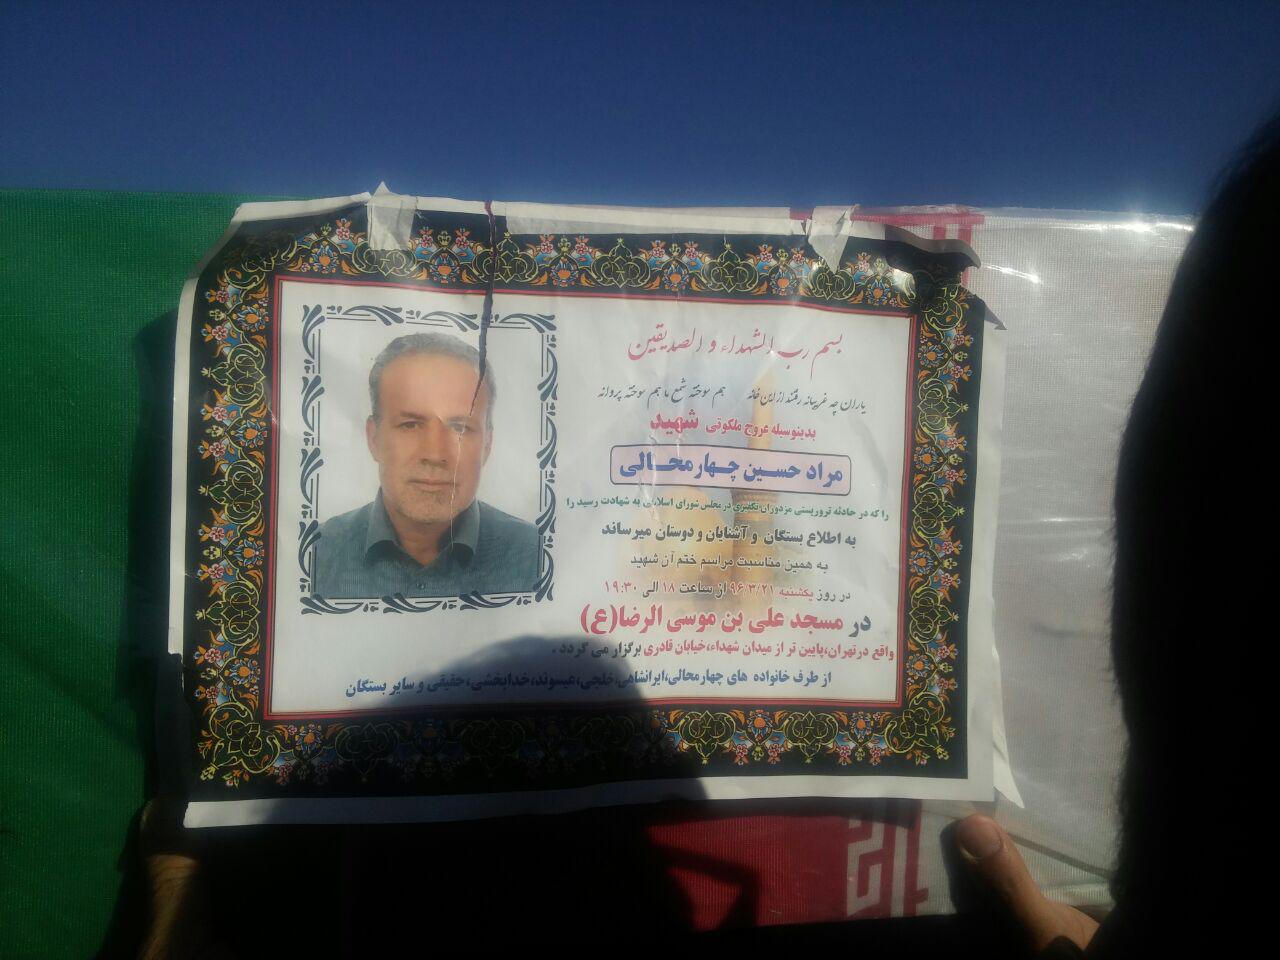 بسم رب الشهداء و الصدیقین
یاران چه غریبانه رفتند از این خانه هم سوخته شمع ما هم سوخته پروانه
بدینوسیله عروج ملکوتی شهید
مراد حسین چهارمحالی
را که در حادثه تروریستی مزدوران تکفیری در مجلس شورای اسلامی به شهادت رسید را
به اطلاع بستگان و آشنایان و دوستان میرساند
به همین مناسبت مراسم ختم آن شهید
در روز یکشنبه ۹۶/۳/۲۱ از ساعت ۱۸ الی ۱۹:۳۰
در مسجد علی بن موسی الرضا(ع)
واقع درتهران،پایین تر از میدان شهداء،خیابان قادری برگزار می گردد .
از طرف خانواده های چهارمحالی،ایرانشاهی،خلجی،عیسوند،خدابخشی،حقیقی و سایر بستگان